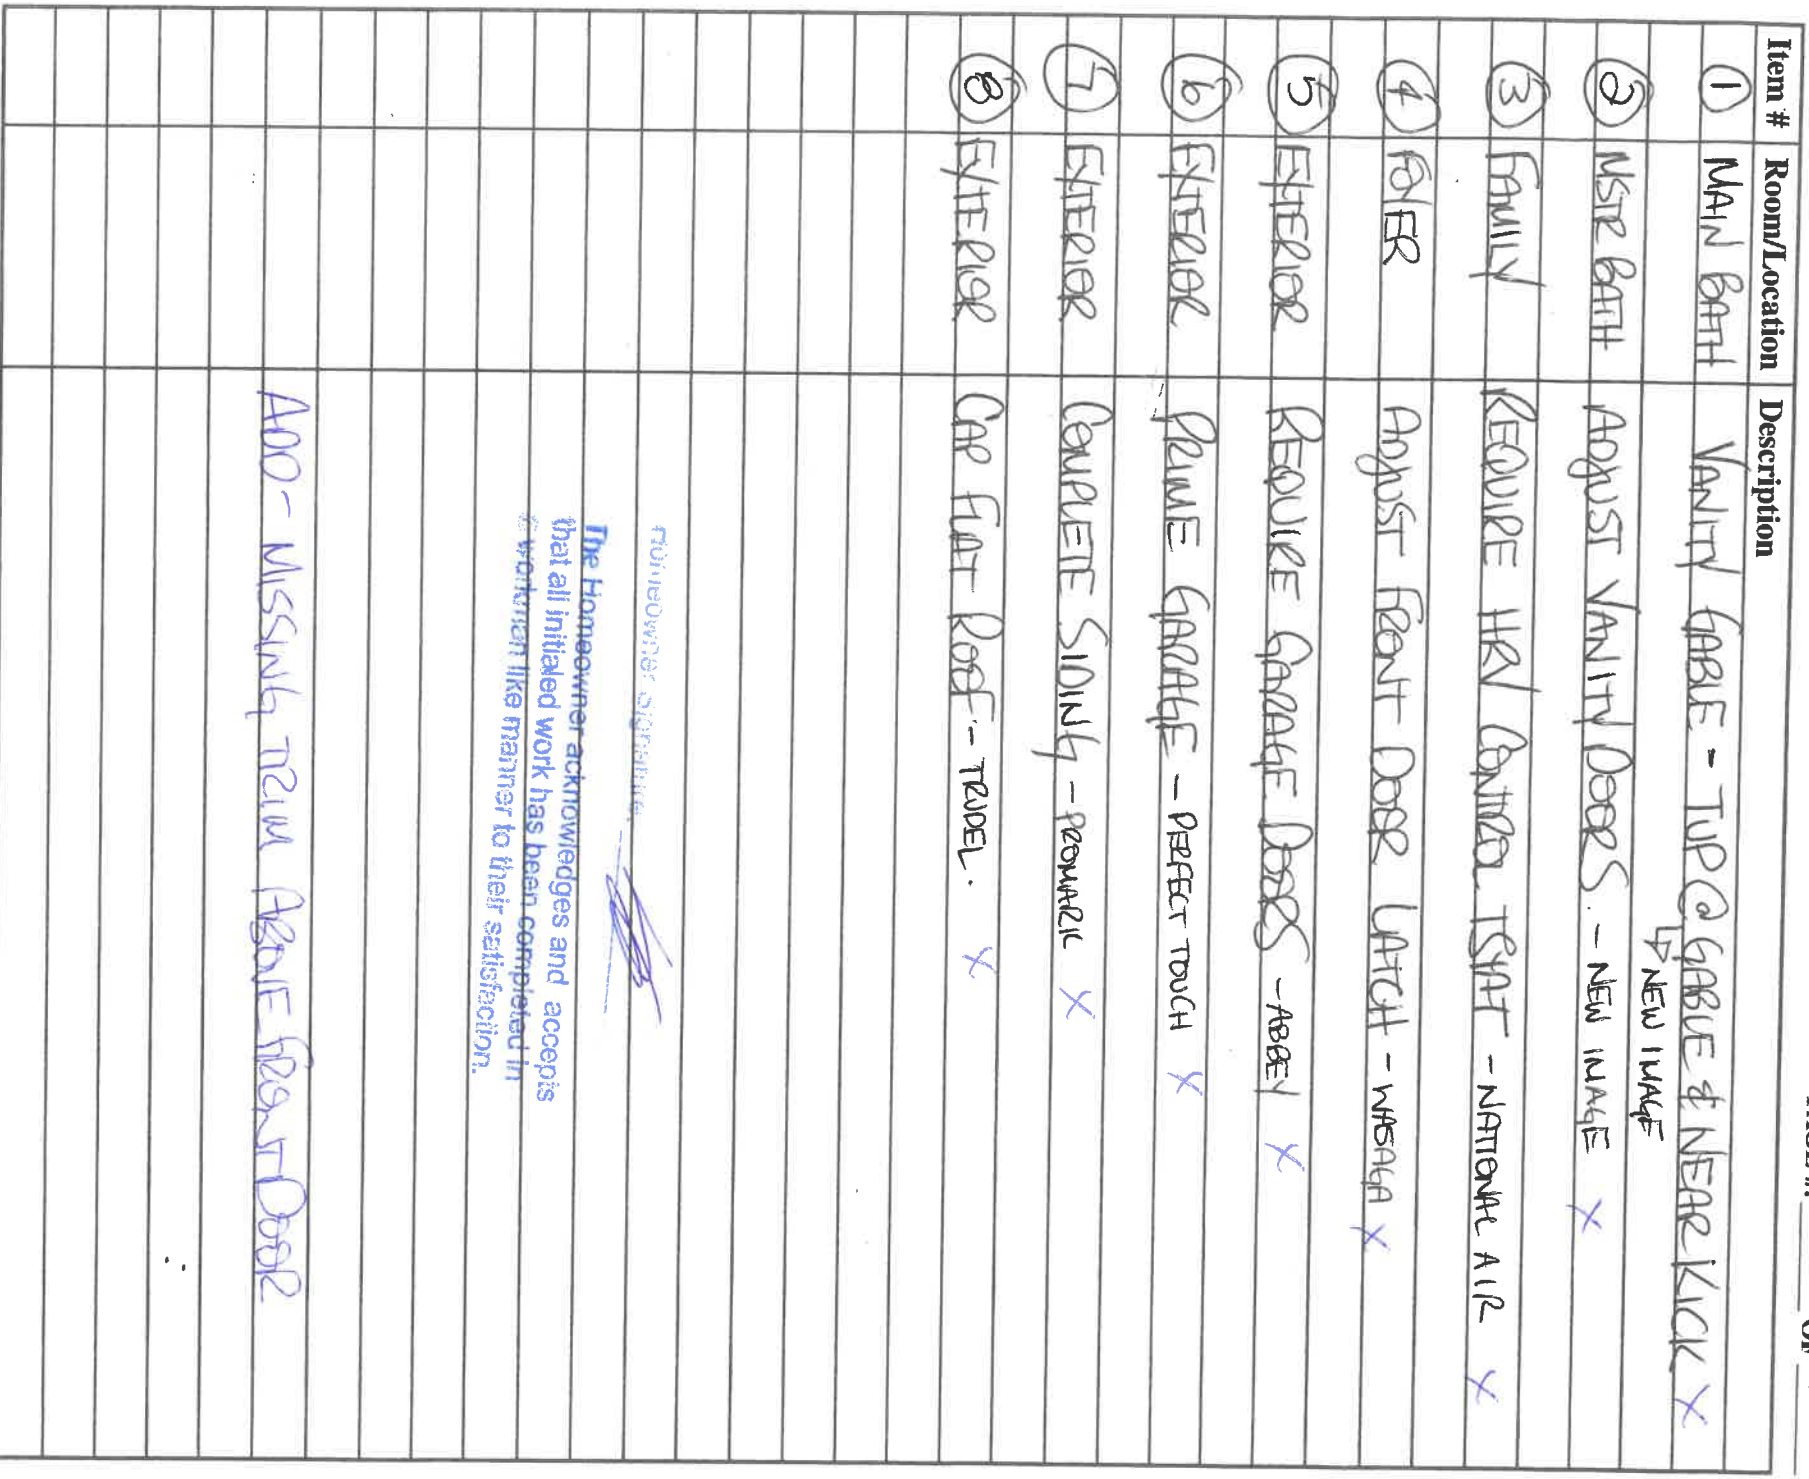 OF
Item # Room/Location Description
1 MAIN BATH VANITY GABLE - TUP @ GABLE & NEAR KICK X
↳ NEW IMAGE
2 MSTR BATH ADJUST VANITY DOORS. - NEW IMAGE X
3 FAMILY REQUIRE HRV CONTROL TSTAT - NATIONAL AIR X
4 FOYER ADJUST FRONT DOOR LATCH - WASAGA X
5 EXTERIOR REQUIRE GARAGE DOORS - ABBEY X
6 EXTERIOR PRIME GARAGE - PERFECT TOUCH X
7 EXTERIOR COMPLETE SIDING - PROMARK X
8 EXTERIOR CAP FLAT ROOF - TRUDEL. X
Homeowner Signature
The Homeowner acknowledges and accepts
that all initialed work has been completed in
a workman like manner to their satisfaction.
ADD - MISSING TRIM ABOVE FRONT DOOR